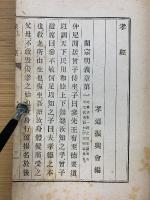 孝經
孝道振興會編
開宗明義章第一
仲尼凥曾子侍坐子曰參先王有至德要道
以訓天下民用和睦上下無怨女知之乎曾子
避席曰參不敏何足以知之子曰夫孝德之本
也教之所由生也復坐吾語女身體髮膚受之
父母不敢毀傷孝之始也立身行道揚名於後